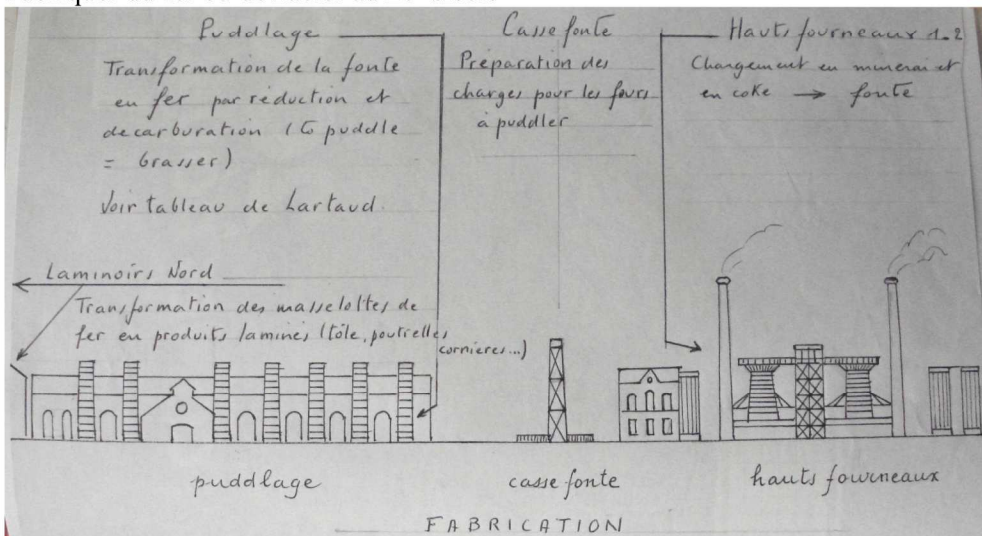 Puddlage
Transformation de la fonte
en fer par réduction et
decarburation (to puddle
= brasser)
Voir tableau de Lartaud.
Casse fonte
Préparation des
charges pour les fours
à puddler
Hauts fourneaux 1.2
Chargement en minerai et
en coke → fonte
Laminoirs Nord
Transformation des masselottes de
fer en produits laminés (tôle, poutrelles
cornieres...)
puddlage
casse fonte
hauts fourneaux
FABRICATION